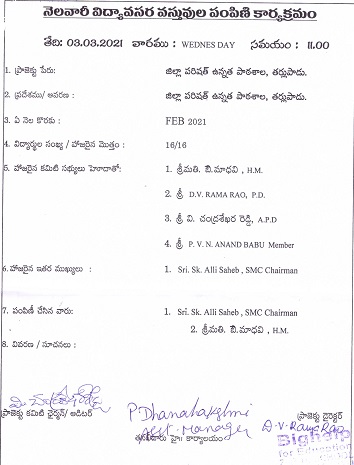 నెలవారీ విద్యావసర వస్తువుల పంపిణి కార్యక్రమం
తేది: 03.03.2021 వారము : WEDNES DAY సమయం: 11.00
1. ప్రాజెక్టు పేరు: జిల్లా పరిషత్ ఉన్నత పాఠశాల, తర్లుపాడు.
2. ప్రదేశము/ ఆవరణ : జిల్లా పరిషత్ ఉన్నత పాఠశాల, తర్లుపాడు.
3. ఏ నెల కొరకు : FEB 2021
4. విద్యార్ధుల సంఖ్య / హాజరైన మొత్తం: 16/16
5. హాజరైన కమిటి సభ్యులు హెూదాతో: 1. శ్రీమతి. బి.మాధవి , H.M.
2. శ్రీ D.V. RAMA RAO, P.D.
3. శ్రీ వి. చంద్రశేఖర రెడ్డి, A.P.D
4. శ్రీ P. V. N. ANAND BABU Member
6.హాజరైన ఇతర ముఖ్యులు : 1. Sri. Sk. Alli Saheb , SMC Chairman
7. పంపిణీ చేసిన వారు: 1. Sri. Sk. Alli Saheb , SMC Chairman
2. శ్రీమతి. బి.మాధవి , H.M.
8. వివరణ / సూచనలు :
P Dhanalakshmi
Asst. Manager
D.V. Rama Rao
ప్రాజెక్టు కమిటి చైర్మన్/ ఆడిటర్ కార్యాలయం ప్రాజెక్టు డైరెక్టర్
Bighelp
for Education